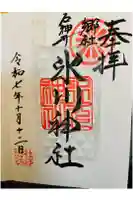 奉拝
郷社
石神井
氷川神社
令和七年十月十二日